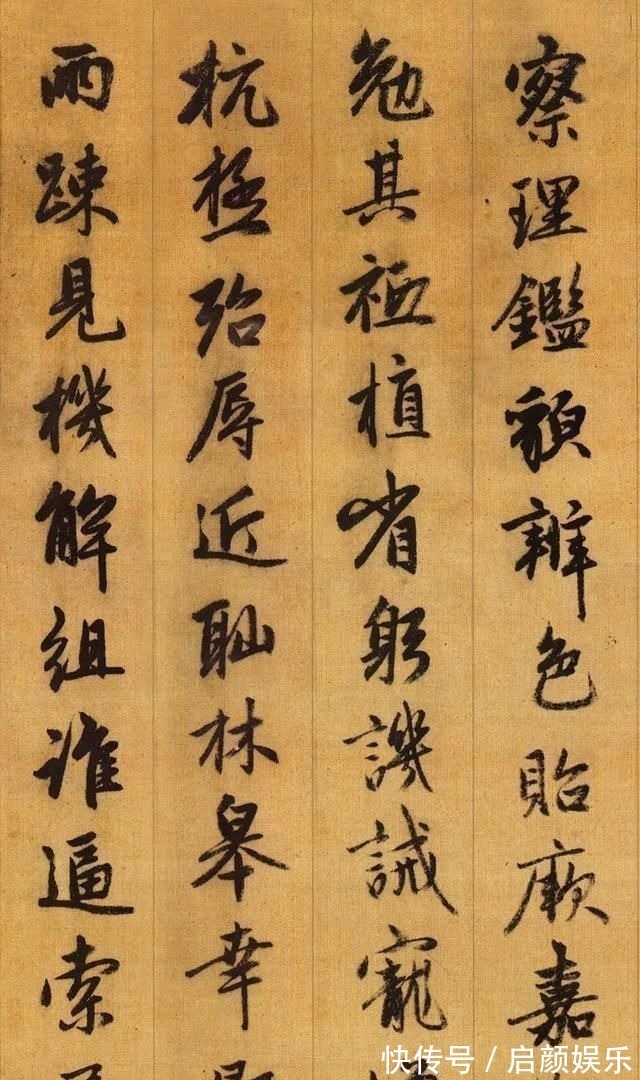 察理鑑貌辨色貽厥嘉
勉其祗植省躬譏誡寵
抗極殆辱近恥林皋幸
兩疎見機解組誰逼索
快传号/启颜娱乐